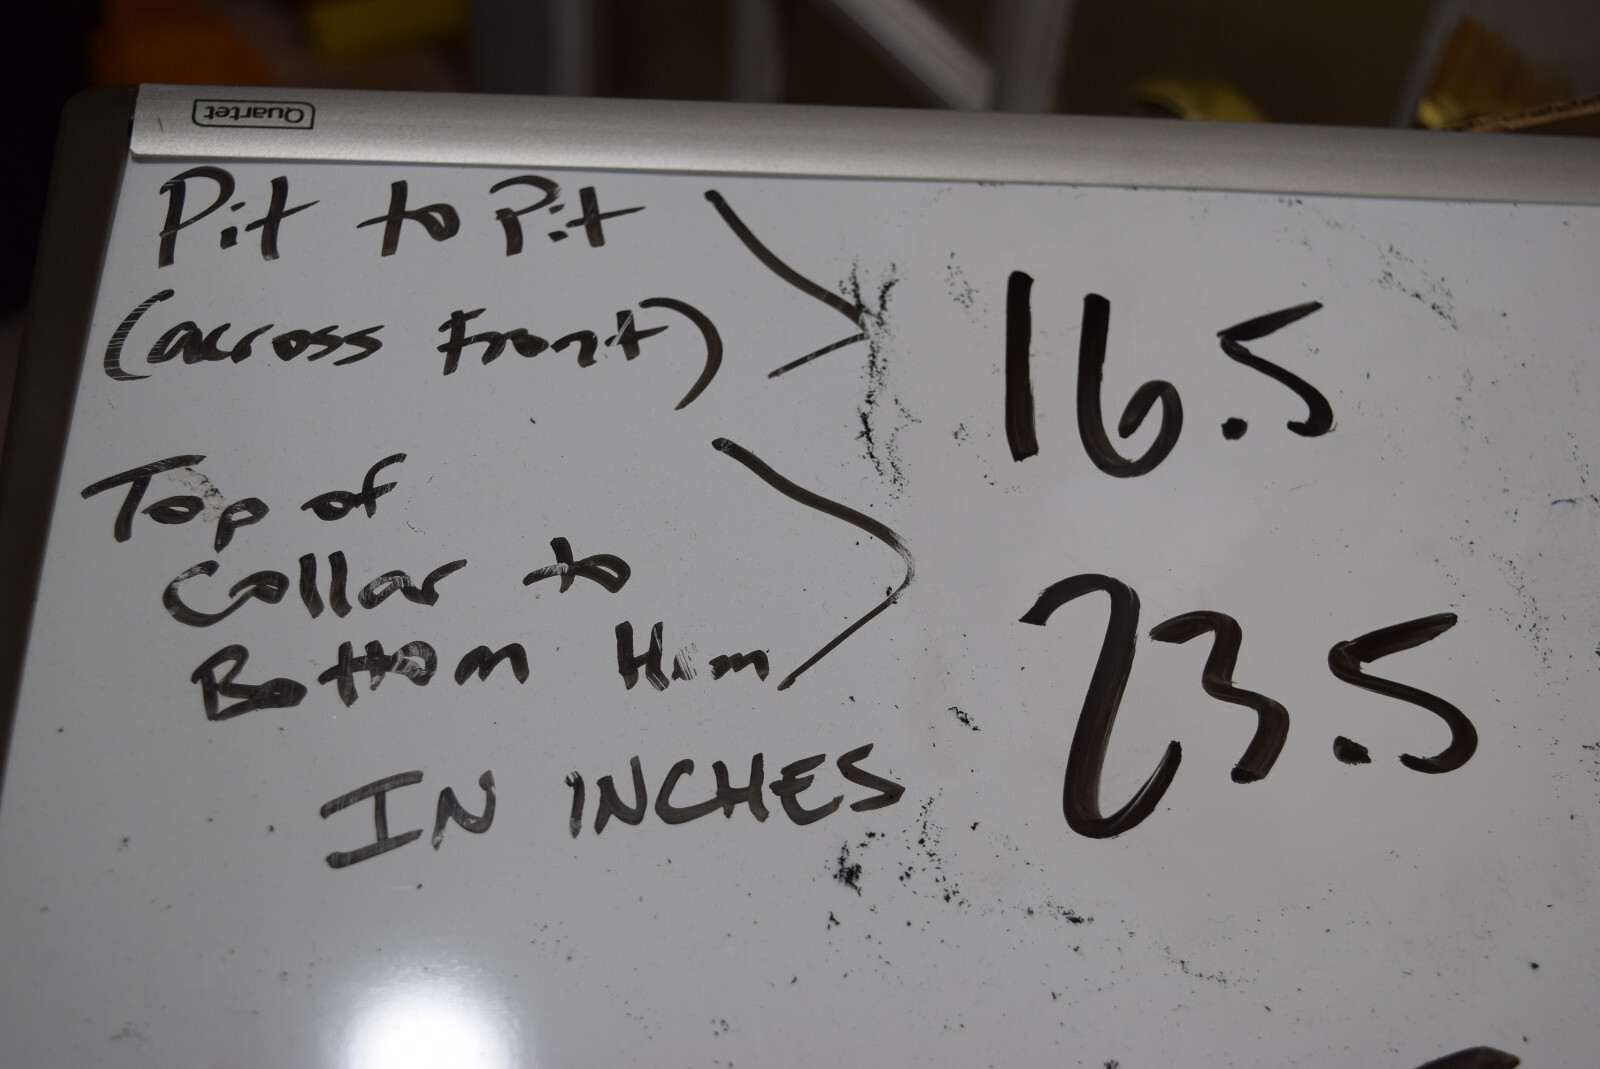 Quartet
Pit to Pit
(across front)
16.5
Top of
Collar to
Bottom Hem
23.5
IN INCHES